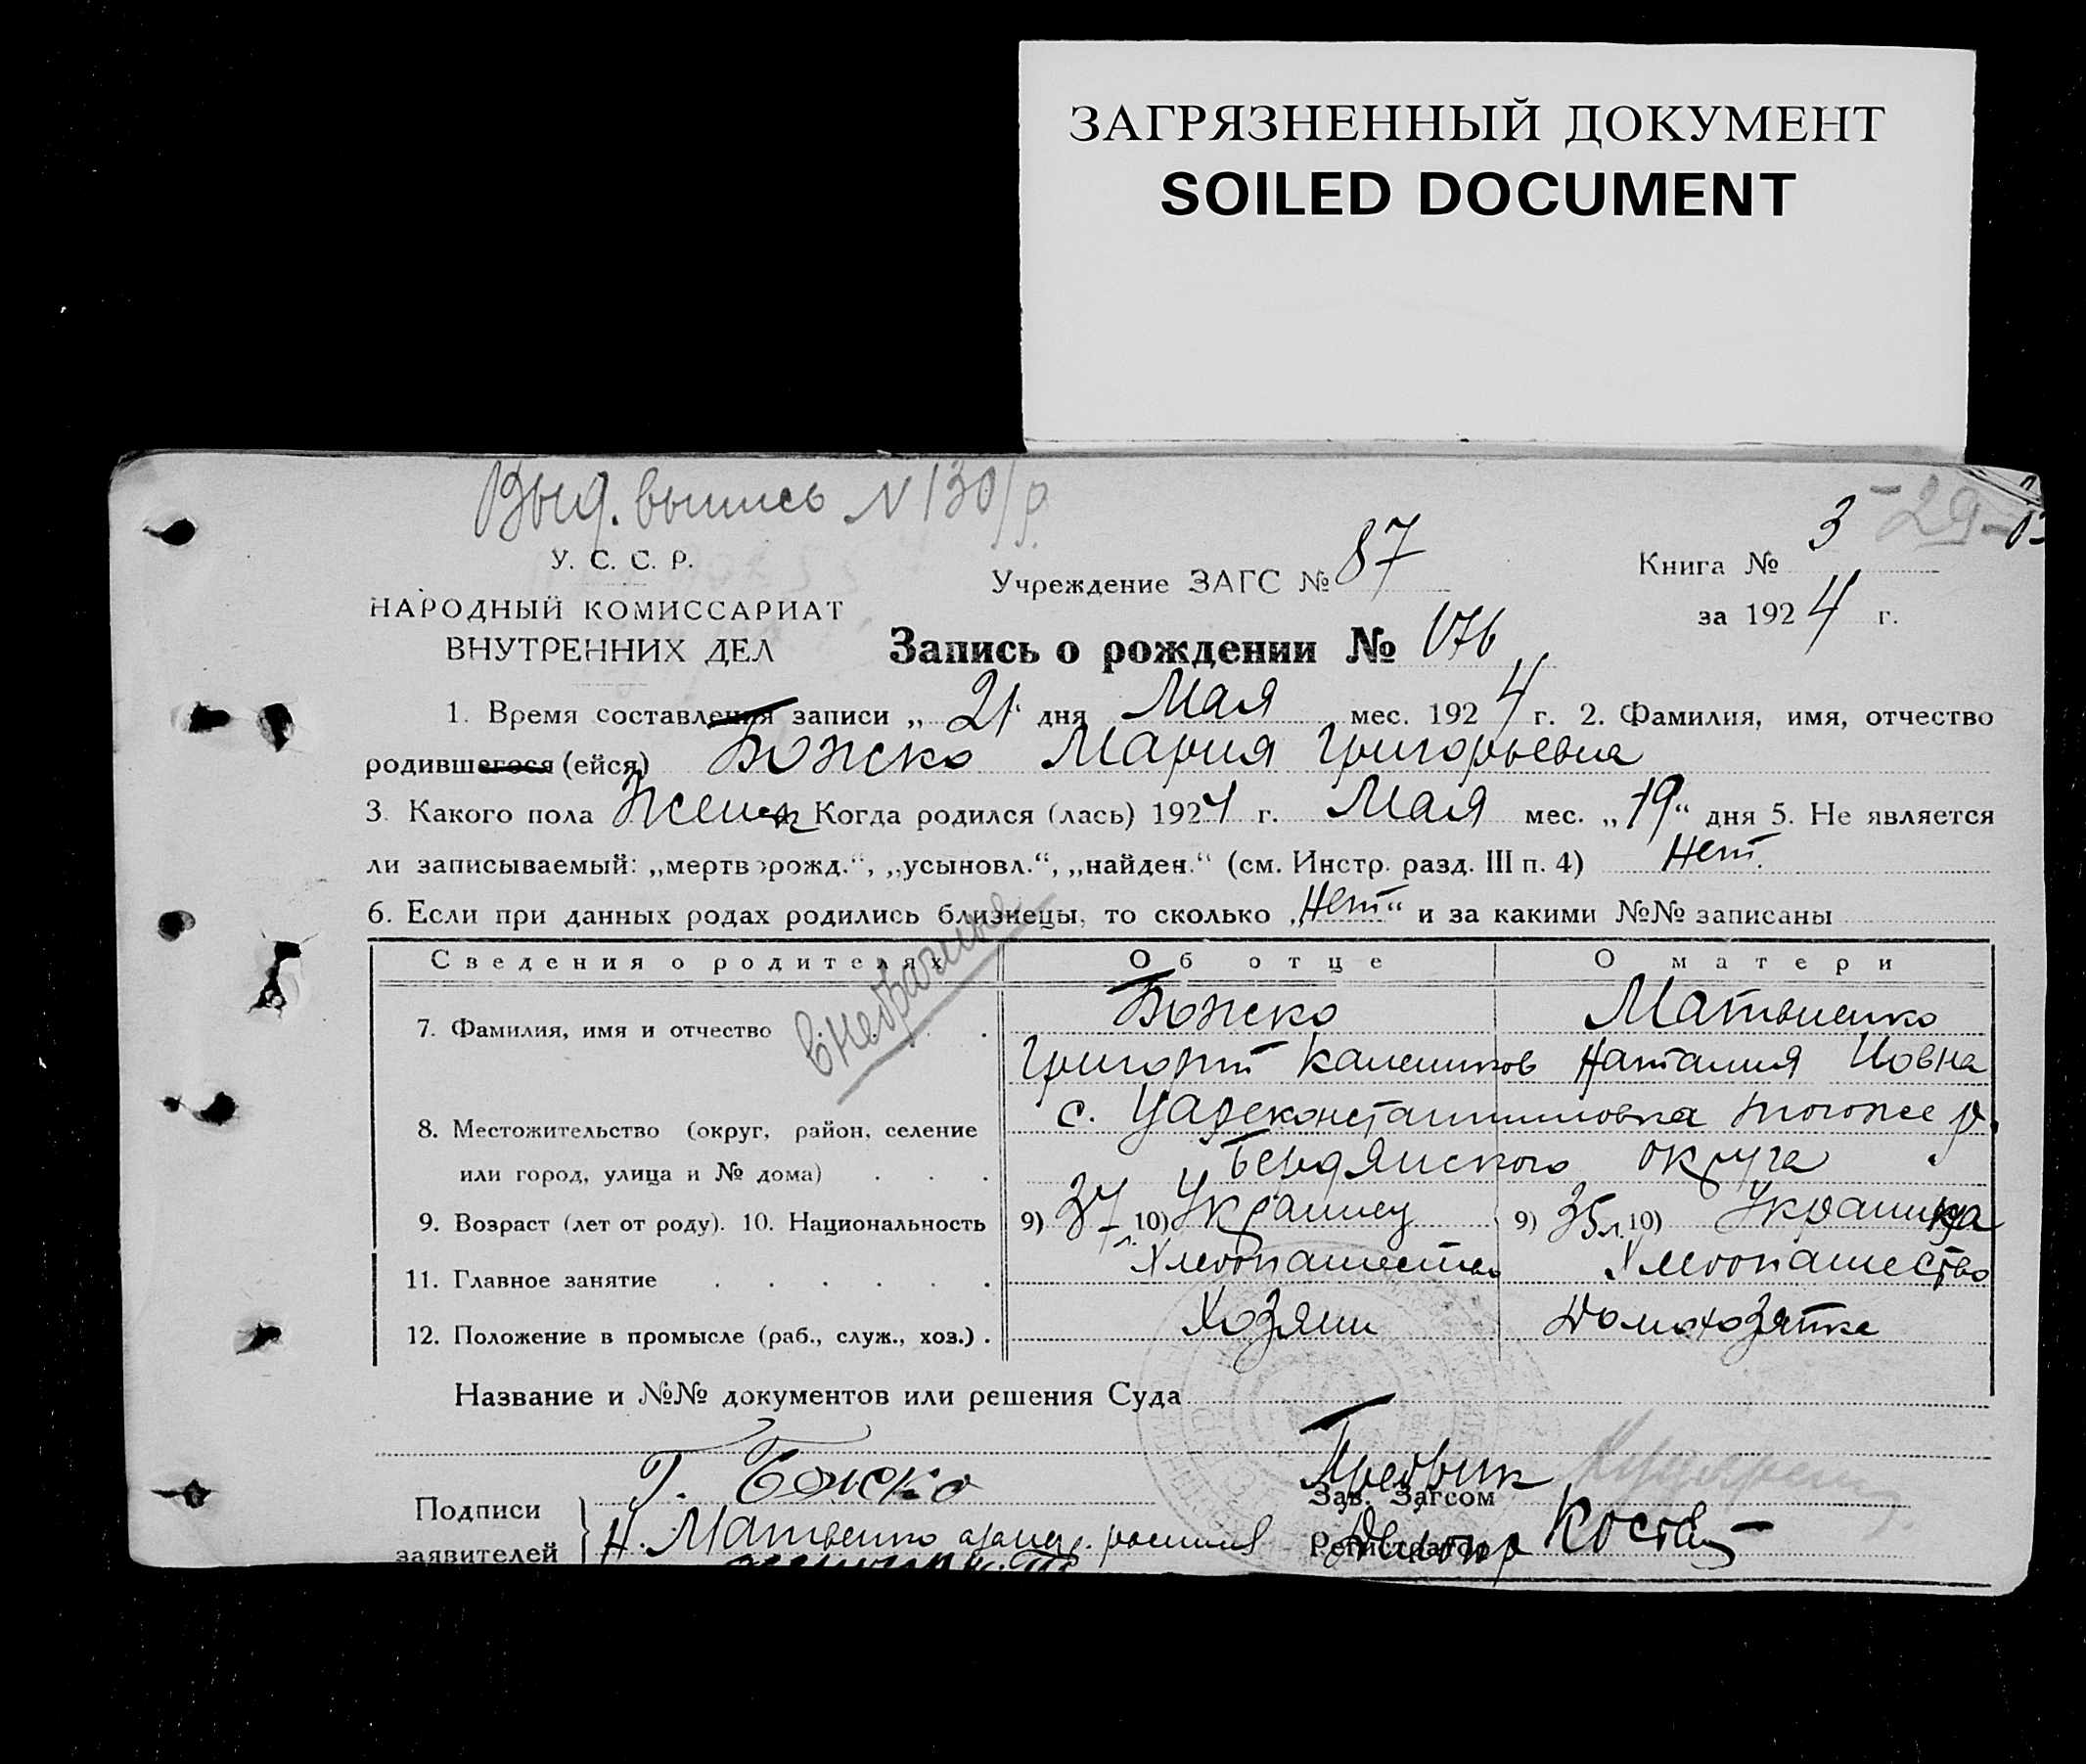 ЗАГРЯЗНЕННЫЙ ДОКУМЕНТ
SOILED DOCUMENT
Выд. выпись N 130/р.
3 - 29 -
У. С. С. Р.
НАРОДНЫЙ КОМИССАРИАТ
ВНУТРЕННИХ ДЕЛ
Учреждение ЗАГС № 87
Книга №
за 1924 г.
Запись о рождении № 176
1. Время составления записи „21“ дня Мая мес. 1924 г. 2. Фамилия, имя, отчество
родившегося (ейся) Божско Мария Григорьевна
3. Какого пола Женск Когда родился (лась) 1924 г. Мая мес. „19“ дня 5. Не является
ли записываемый: „мертворожд.“, „усыновл.“, „найден.“ (см. Инстр. разд. III п. 4) Нет.
6. Если при данных родах родились близнецы, то сколько „Нет“ и за какими №№ записаны
Сведения о родителях Об отце О матери
внебрачная
7. Фамилия, имя и отчество Божско Матвиенко
Григорий Наталия Иовна
8. Местожительство (округ, район, селение с. Цареконстантиновка тогоже р.
или город, улица и № дома) Бердянского округа
9. Возраст (лет от роду). 10. Национальность 9) 37 л. 10) Украинец 9) 35 л. 10) Украинка
11. Главное занятие Хлебопашество Хлебопашество
12. Положение в промысле (раб., служ., хоз.) Хозяин Домохозяйка
Название и №№ документов или решения Суда
Подписи
заявителей
Г. Божско
Н. Матвенко
Предрик
Зав. Загсом
Регистратор